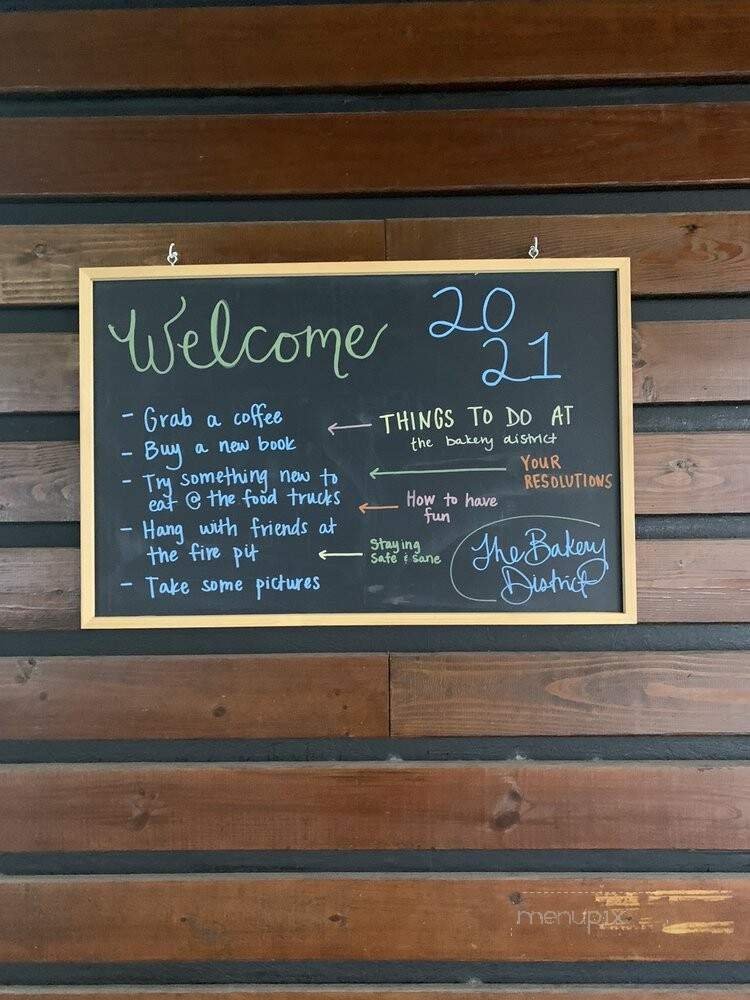 Welcome
20
21
- Grab a coffee
- Buy a new book
- Try something new to
eat @ the food trucks
- Hang with friends at
the fire pit
- Take some pictures
THINGS TO DO AT
the bakery district
YOUR
RESOLUTIONS
How to have
fun
Staying
Safe & sane
The Bakery
District
menupix